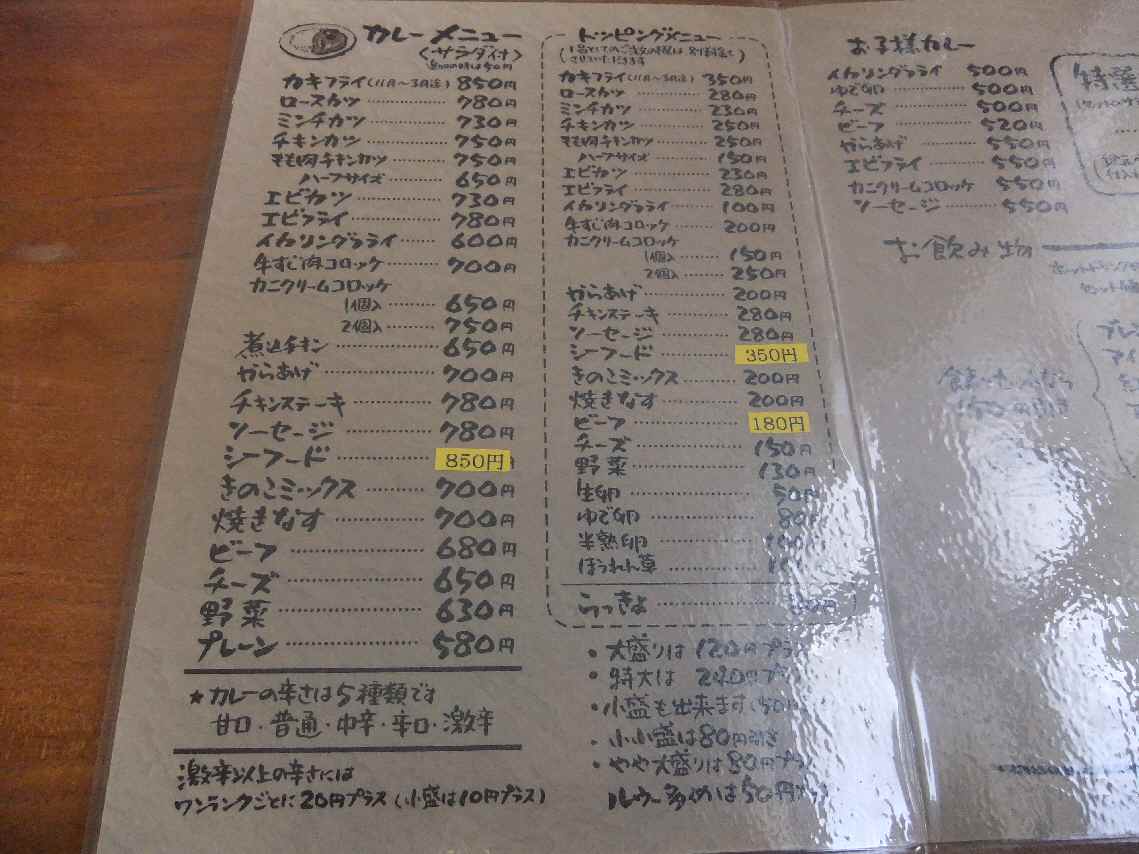 カレーメニュー
〈サラダ付〉
カキフライ(11月〜3月迄) 850円
ロースカツ 780円
ミンチカツ 730円
チキンカツ 750円
もも肉チキンカツ 750円
ハーフサイズ 650円
エビカツ 730円
エビフライ 780円
イカリングフライ 600円
牛すじ肉コロッケ 700円
カニクリームコロッケ
1個入 650円
2個入 750円
煮込チキン 650円
からあげ 700円
チキンステーキ 780円
ソーセージ 780円
シーフード 850円
きのこミックス 700円
焼きなす 700円
ビーフ 680円
チーズ 650円
野菜 630円
プレーン 580円
★カレーの辛さは5種類です
甘口・普通・中辛・辛口・激辛
激辛以上の辛さには
ワンランクごとに20円プラス(小盛は10円プラス)
トッピングメニュー
カキフライ(11月〜3月迄) 350円
ロースカツ 280円
ミンチカツ 230円
チキンカツ 250円
もも肉チキンカツ 250円
ハーフサイズ 150円
エビカツ 230円
エビフライ 280円
イカリングフライ 100円
牛すじ肉コロッケ 200円
カニクリームコロッケ
1個入 150円
2個入 250円
からあげ 200円
チキンステーキ 280円
ソーセージ 280円
シーフード 350円
きのこミックス 200円
焼きなす 200円
ビーフ 180円
チーズ 150円
野菜 130円
生卵 50円
ゆで卵 80円
半熟卵
ほうれん草
らっきょ
・大盛りは120円プラス
・特大は 240円プ
・小盛も出来ます(50円
・小小盛は80円引き
・やや大盛りは80円プラ
ルウー多めは50円プラ
お子様カレー
イカリングフライ 500円
ゆで卵 500円
チーズ 500円
ビーフ 520円
からあげ 550円
エビフライ 550円
カニクリームコロッケ 550円
ソーセージ 550円
特選
お飲み物